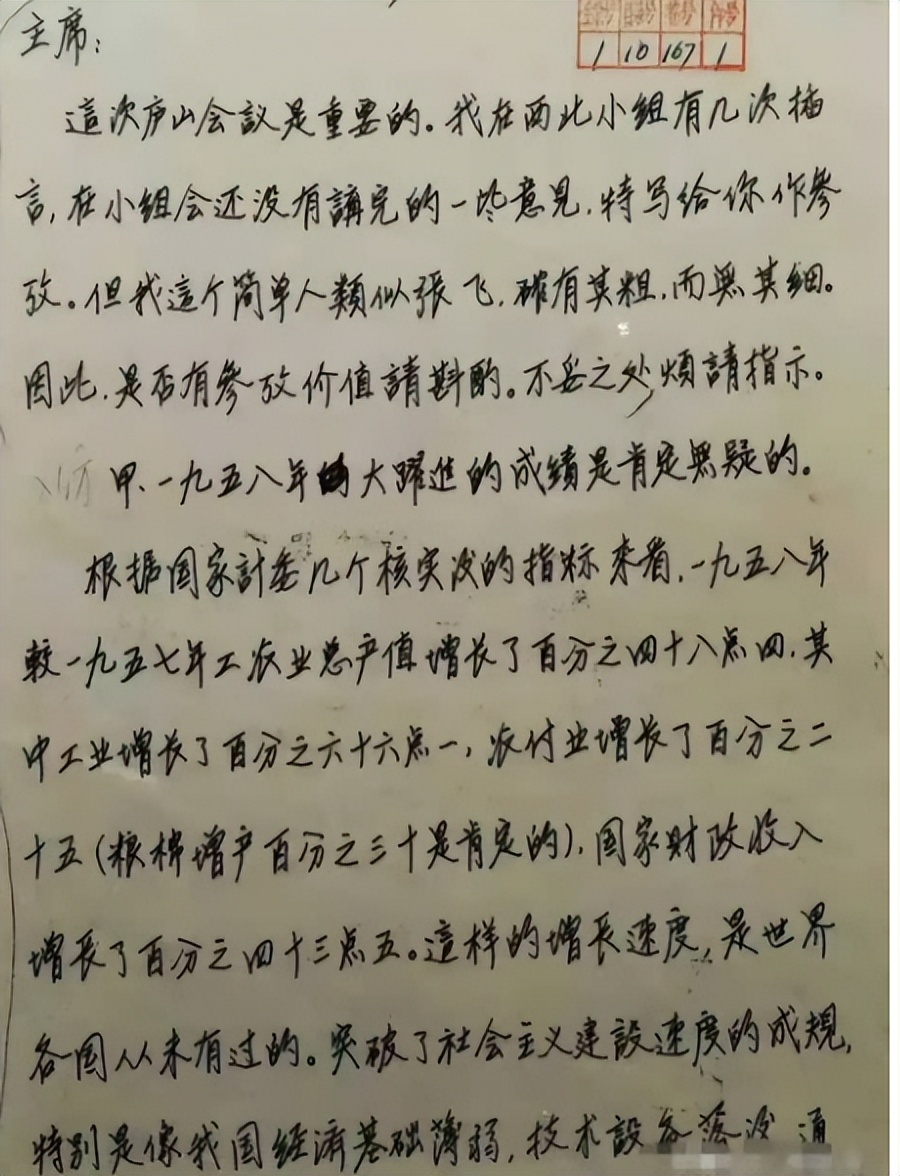 主席：
1 10 167 1
這次庐山会议是重要的。我在西北小组有几次插
言，在小组会还没有講完的一些意見，特写给你作參
攷。但我這个简单人類似張飞，確有其粗，而無其細。
因此，是否有參攷价值請斟酌。不妥之处，煩請指示。
甲、一九五八年大躍進的成績是肯定無疑的。
根据国家計委几个核实后的指标来看，一九五八年
較一九五七年工农业总产值增长了百分之四十八点四，其
中工业增长了百分之六十六点一，农付业增长了百分之二
十五（粮棉增产百分之三十是肯定的），国家财政收入
增长了百分之四十三点五。這样的增长速度，是世界
各国从未有过的。突破了社会主义建設速度的成規，
特别是像我国经濟基础薄弱，技术設备落后，通